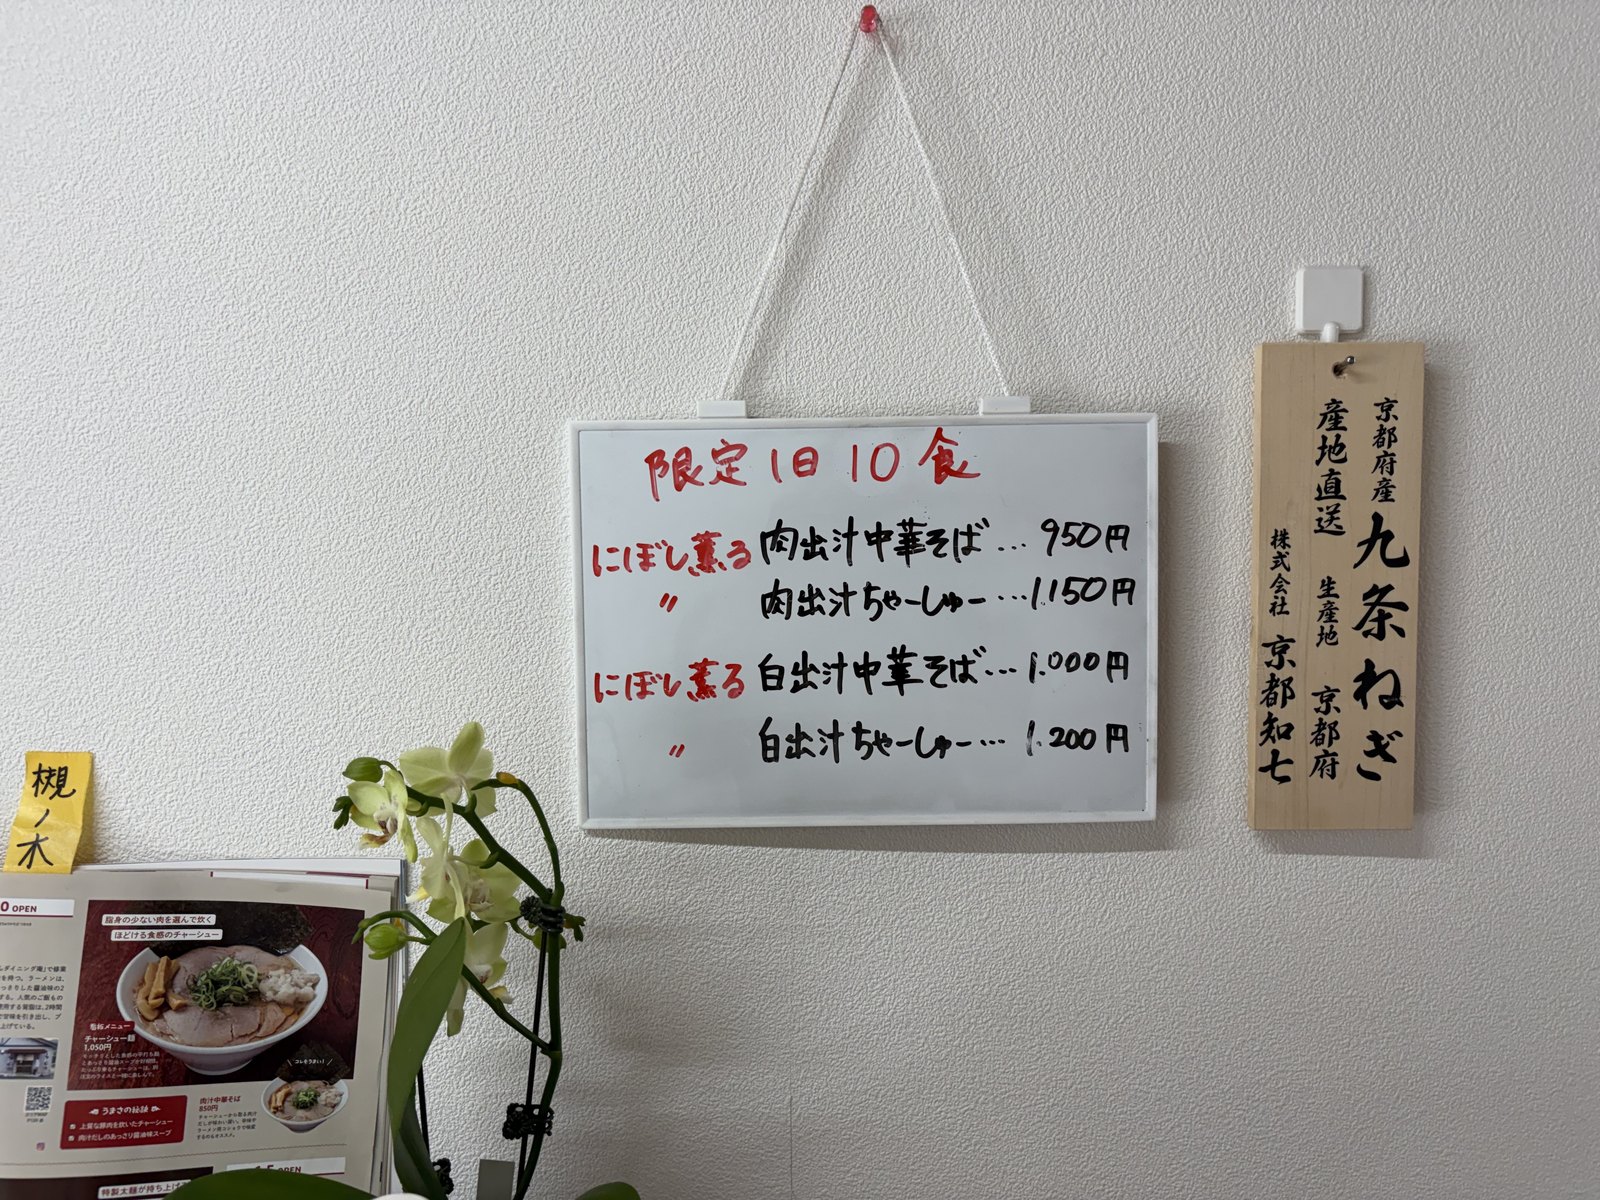 限定1日10食
にぼし薫る 肉出汁中華そば…950円
〃 肉出汁ちゃーしゅー…1.150円
にぼし薫る 白出汁中華そば…1.000円
〃 白出汁ちゃーしゅー…1.200円
京都府産 九条ねぎ
産地直送 生産地 京都府
株式会社 京都知七
槻ノ木
0 OPEN
脂身の少ない肉を選んで炊く
ほどける食感のチャーシュー
看板メニュー
チャーシュー麺
1,050円
コレもうまい!
肉汁中華そば
850円
うまさの秘訣
上質な豚肉を炊いたチャーシュー
肉汁だしのあっさり醤油味スープ
OPEN
特製太麺が持ち上げ